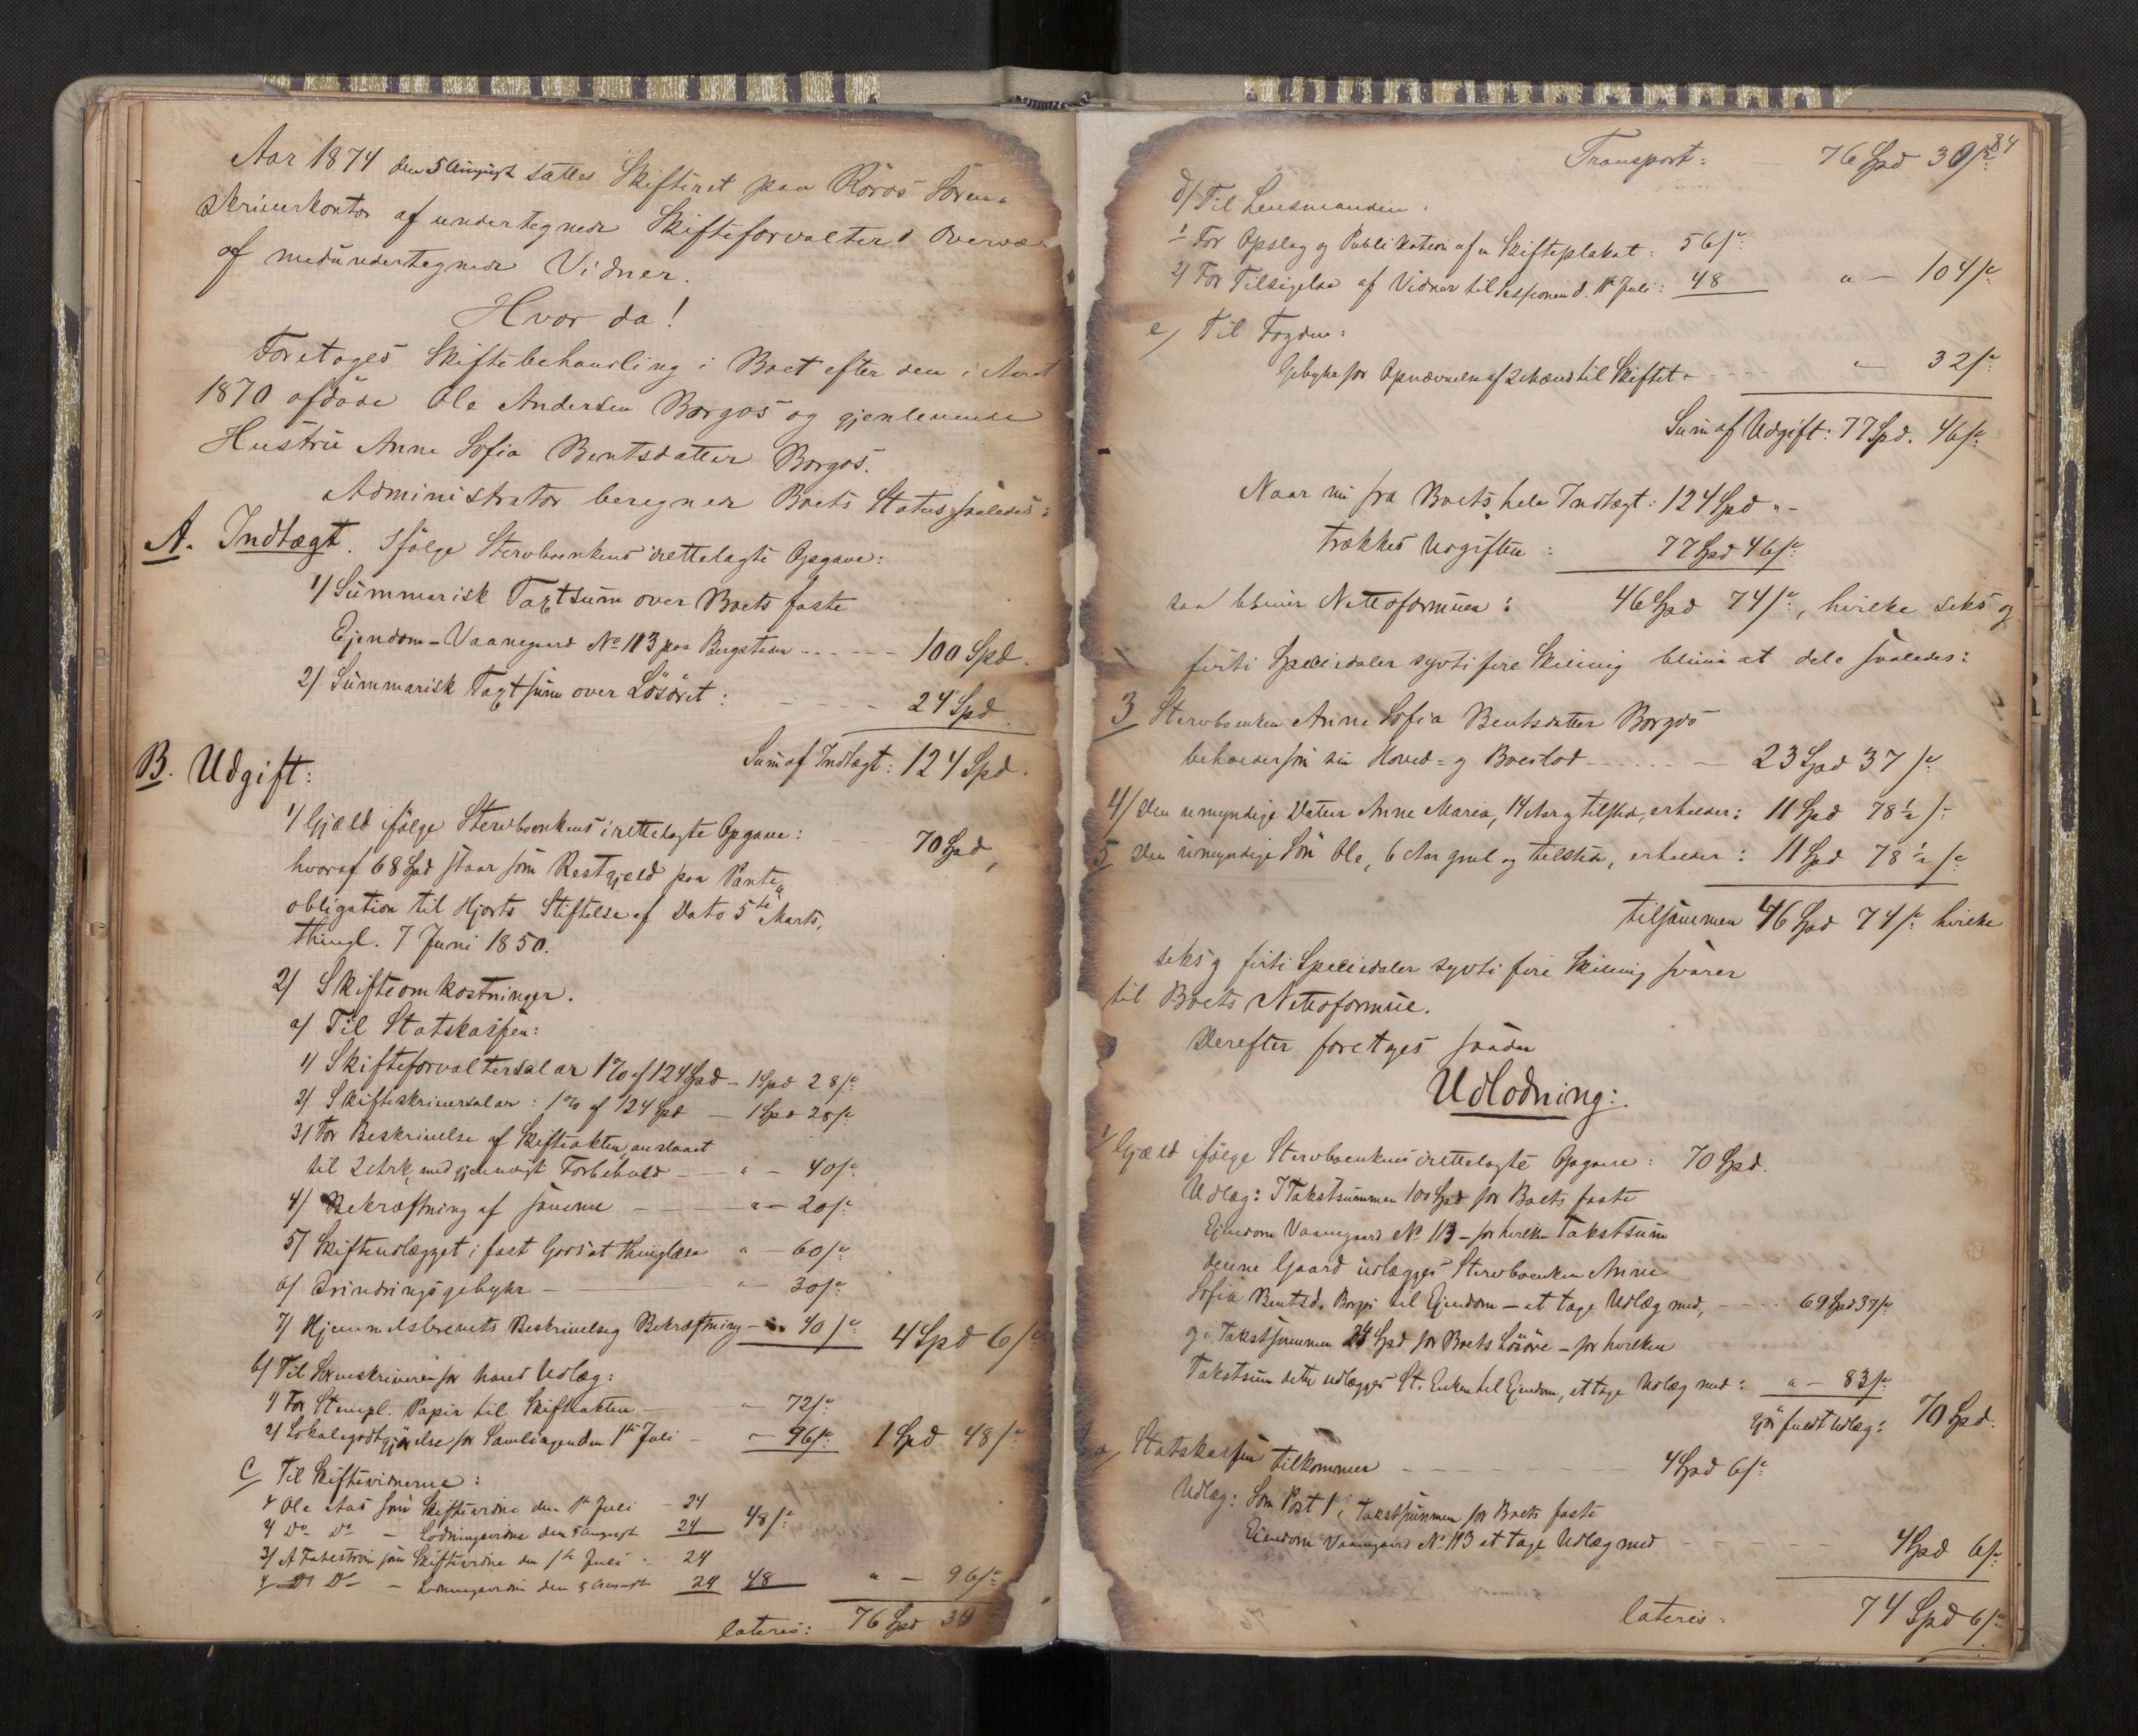 Aar 1874 den 5 August sattes Skifteret paa Röros Soren-
skriverkontor af undertegnede Skifteforvalter i Overvæ
af medundertegnede Vidner.
Hvor da!
Foretoges Skiftebehandling i Boet efter den i Aaret
1870 afdöde Ole Andersen Borgos og gjenlevende
Hustru Anne Sofia Bentsdatter Borgos.
Administrator beregnede Boets Status saaledes:
A. Indtægt. Ifölge Stervboenkens irettelagte Opgave:
1) Summarisk Taxtsum over Boets faste
Ejendom - Vaanegaard No 113 paa Bergstaden ... 100 Spd.
2) Summarisk Taxtsum over Lösöret: 24 Spd
Sum af Indtægt: 124 Spd.
B. Udgift:
1) Gjæld ifölge Stervboenkens irettelagte Opgave: 70 Spd,
hvoraf 68 Spd staar som Restgjeld paa Pante-
obligation til Hjorts Stiftelse af Dato 5te Marts,
thingl. 7 Juni 1850.
2) Skifteomkostninger.
a) Til Statskassen:
1) Skifteforvaltersalar 1% af 124 Spd - 1 Spd 28 s
2) Skifteskriversalar: 1% af 124 Spd - 1 Spd 28 s
3) For Beskrivelse af Skifteakten, anslaaet
til 2 Ark, med gjenvigt Forbehold - " - 40 s
4) Bekræftning af samme - " - 20 s
5) Skifteudlægget i fast Gods at thinglæse " - 60 s
6) Erindringsgebyhr - " - 30 s
7) Hjemmelsbrevets Beskrivelse og Bekræftning - " 40 s 4 Spd 6 s
b) Til Sorenskriveren for hans Udlæg:
1) For Stempl. Papir til Skifteakten - " 72 s
2) Lokalegodtgjörelse for Samlingen den 1ste Juli - " 96 s 1 Spd 48 s
c) Til Skiftevidnerne:
1) Ole Aas som Skiftevidne den 1ste Juli - 24
2) Do Do - Lodningsvidne den 5 August 24 48 s
3) A som Skiftevidne den 1ste Juli - 24
4) Do Do - Lodningsvidne den 5 August 24 48 " - 96 s
lateris: 76 Spd 30
84
Transport: 76 Spd 30 s
d) Til Lensmanden:
1 For Opslag og Publikation af en Skifteplakat: 56 s
2) For Tilsigelse af Vidner til Sessionen d. 1ste Juli: 48 " - 104 s
e) Til Fogden:
Gebyhr for Opnævnelse af 2 Mænd til Skiftet - " 32 s
Sum af Udgift: 77 Spd. 46 s
Naar nu fra Boets hele Indtægt: 124 Spd " -
trækkes Udgiften: 77 Spd 46 s
saa bliver Nettoformuen: 46 Spd 74 s, hvilke seks og
firti Speciedaler sytti fire Skilling blive at dele saaledes:
3 Stervboenken Anne Sofia Bentsdatter Borgos
beholder som sin Hoved- og Boeslod - 23 Spd 37 s
4) Den umyndige Datter Anne Maria, 14 Aar og tilstede, erholder: 11 Spd 78 ½ s
5 Den umyndige Sön Ole, 6 Aar gml og tilstede, erholder: 11 Spd 78 ½ s
tilsammen 46 Spd 74 s hvilke
seks og firti Speciedaler sytti fire Skilling svarer
til Boets Nettoformue.
Derefter foretoges saadan
Udlodning:
1) Gjæld ifölge Stervboenkens irettelagte Opgave: 70 Spd.
Udlæg: I Takstsummen 100 Spd for Boets faste
Ejendom Vaanegaard No 113 - for hvilken Takstsum
denne Gaard udlægges Stervboenken Anne
Sofia Bentsd. Borgos til Ejendom - at tage Udlæg med, - 69 Spd 37 s
og i Takstsummen 24 Spd for Boets Lösöre - for hvilken
Takstsum dette udlægges St. Enken til Ejendom, at tage Udlæg med: " - 83 s
gjör fuldt Udlæg: 70 Spd.
a) Statskassen tilkommer - 4 Spd 6 s
Udlæg: Som Post 1, i Takstsummen for Boets faste
Ejendom Vaanegaard No 113 at tage Udlæg med - 4 Spd 6 s
lateris: 74 Spd 6 s